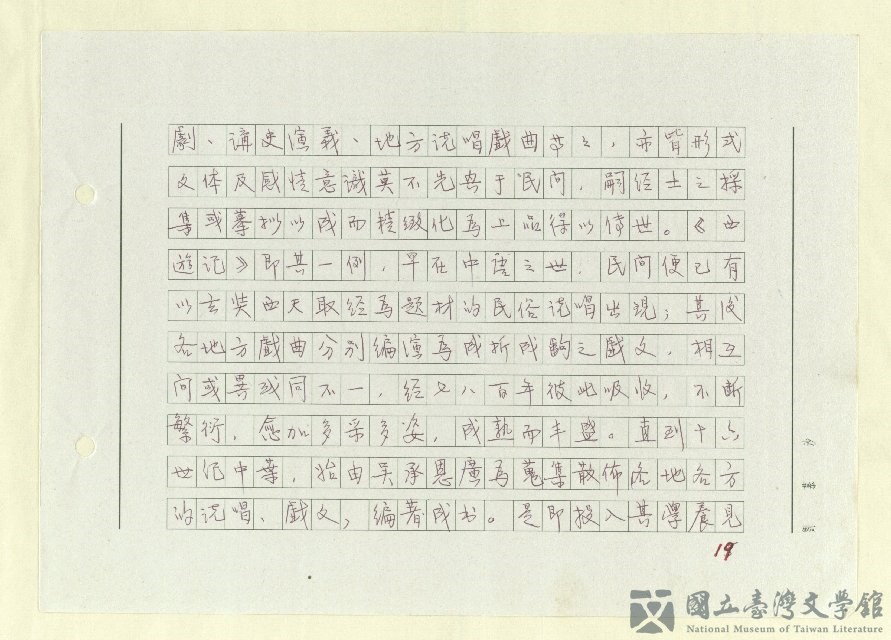 劇、講史演義、地方说唱戲曲廿之，亦皆形式
文体及感情意識莫不先興于民间，嗣经士之採
集或摹拟以成而精緻化為上品得以传世。《西
遊记》即其一例，早在中唐之世，民间便已有
以玄奘西天取经為题材的民俗说唱出現；其後
各地方戲曲分别编演為成折成齣之戲文，相互
间或異或同不一，经七八百年彼此吸收，不断
繁衍，愈加多采多姿，成熟而丰盛。直到十六
世纪中葉，始由吴承恩廣為蒐集散佈各地各方
的说唱、戲文，编著成书。是即投入其學養見
19
國立臺灣文學館
National Museum of Taiwan Literature